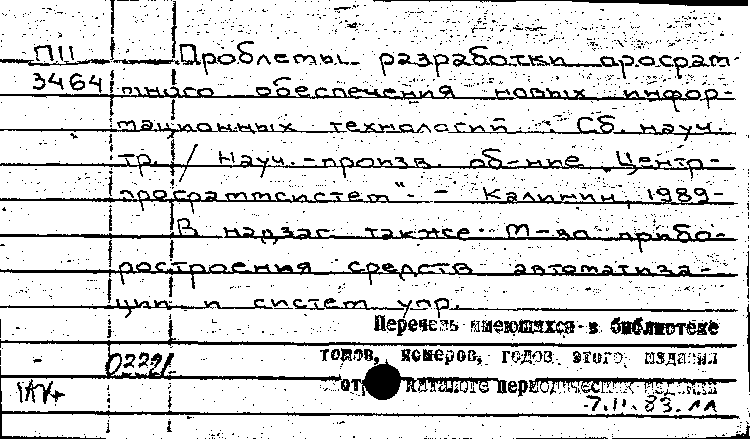 П11
3464
Проблемы разработки програм-
много обеспечения новых инфор-
мационных технологий : Сб. науч.
тр. / Науч.-произв. об-ние „Центр-
программсистем". - Калинин, 1989-
В надзаг. также: М-во прибо-
ростроения средств автоматиза-
ции и систем упр.
Перечень имеющихся в библиотеке
томов, номеров, годов этого издания
каталоге периодических издания
0222
7.11.83.